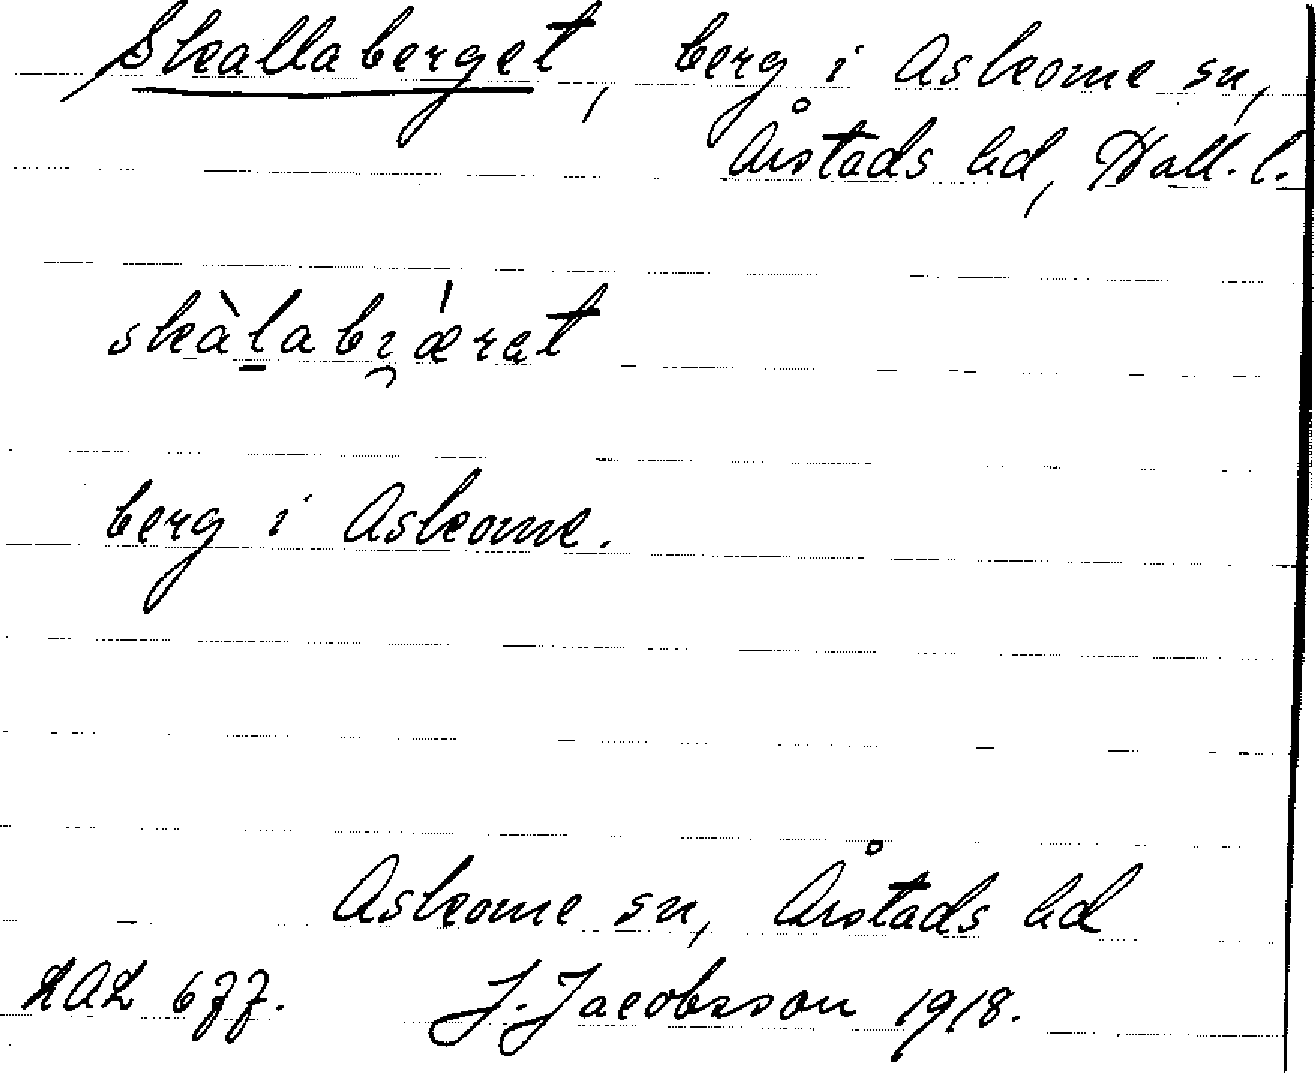 Skallaberget, berg i Askome sn,
Årstads hd, Hall. l.
skàl̠abi̯ǽrət
berg i Askome.
Askome sn, Årstads hd
LAL 677. J. Jacobsson 1918.